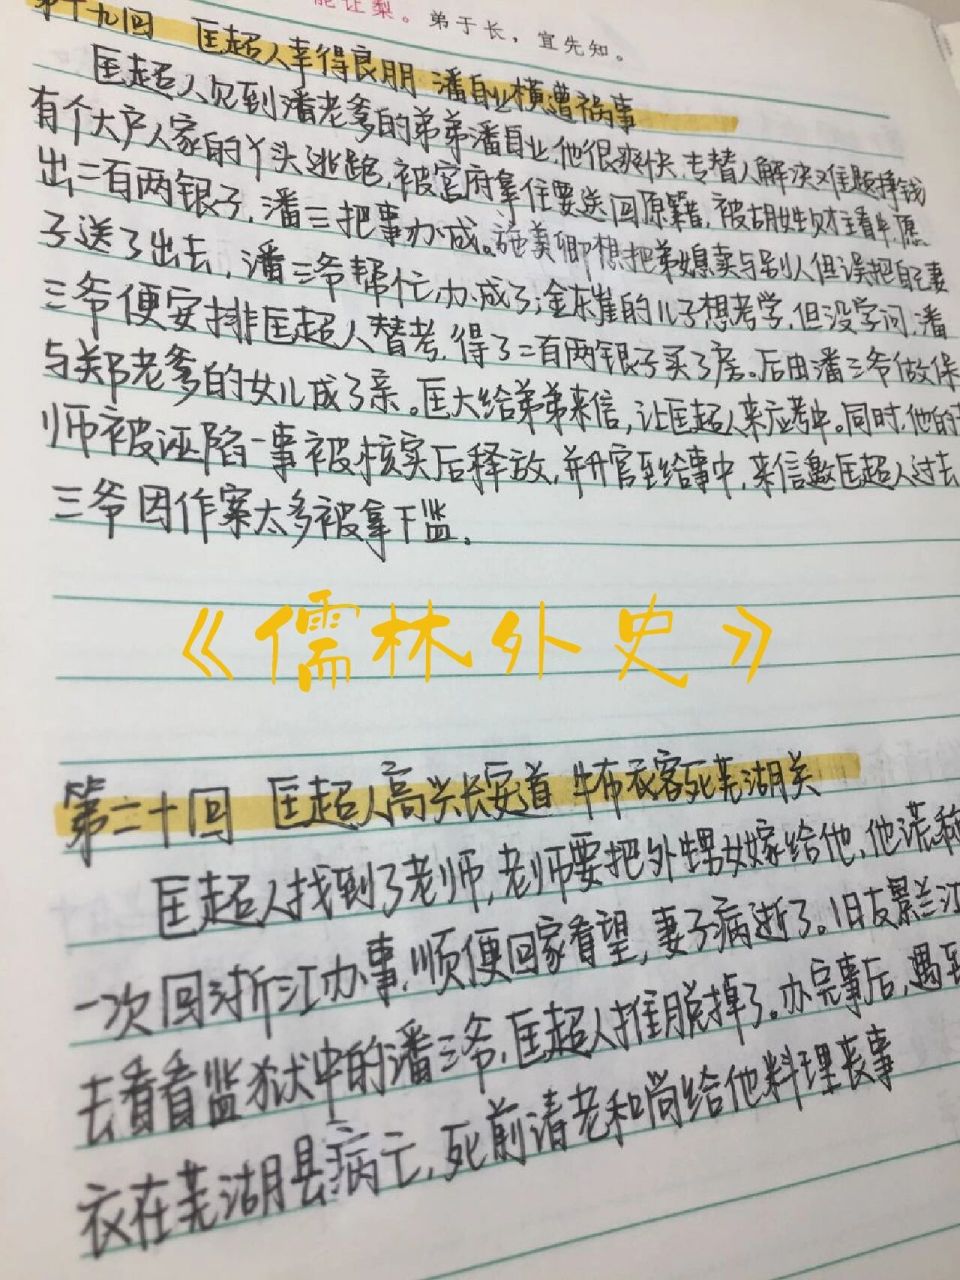 能让梨。弟于长，宜先知。
第十九回 匡超人幸得良朋 潘自业横遭祸事
匡超人见到潘老爹的弟弟潘自业,他很爽快,专替人解决难题挣钱
有个大户人家的丫头逃跑,被官府拿住要送回原籍,被胡姓财主看中,愿
出二百两银子,潘三把事办成。施美卿想把弟媳卖与别人但误把自己妻
子送了出去,潘三爷帮忙办成了;金东崖的儿子想考学,但没学问,潘
三爷便安排匡超人替考,得了二百两银子买了房。后由潘三爷做保
与郑老爹的女儿成了亲。匡大给弟弟来信,让匡超人来应考中。同时,他的
师被诬陷一事被核实后释放,并升官至给事中,来信邀匡超人过去
三爷因作案太多被拿下监。
《儒林外史》
第二十回 匡超人高兴长安道 牛布衣客死芜湖关
匡超人找到了老师,老师要把外甥女嫁给他,他谎称
一次回浙江办事,顺便回家看望,妻子病逝了。旧友景兰江
去看看监狱中的潘三爷,匡超人推脱掉了。办完事后,遇到
衣在芜湖县病亡,死前请老和尚给他料理丧事